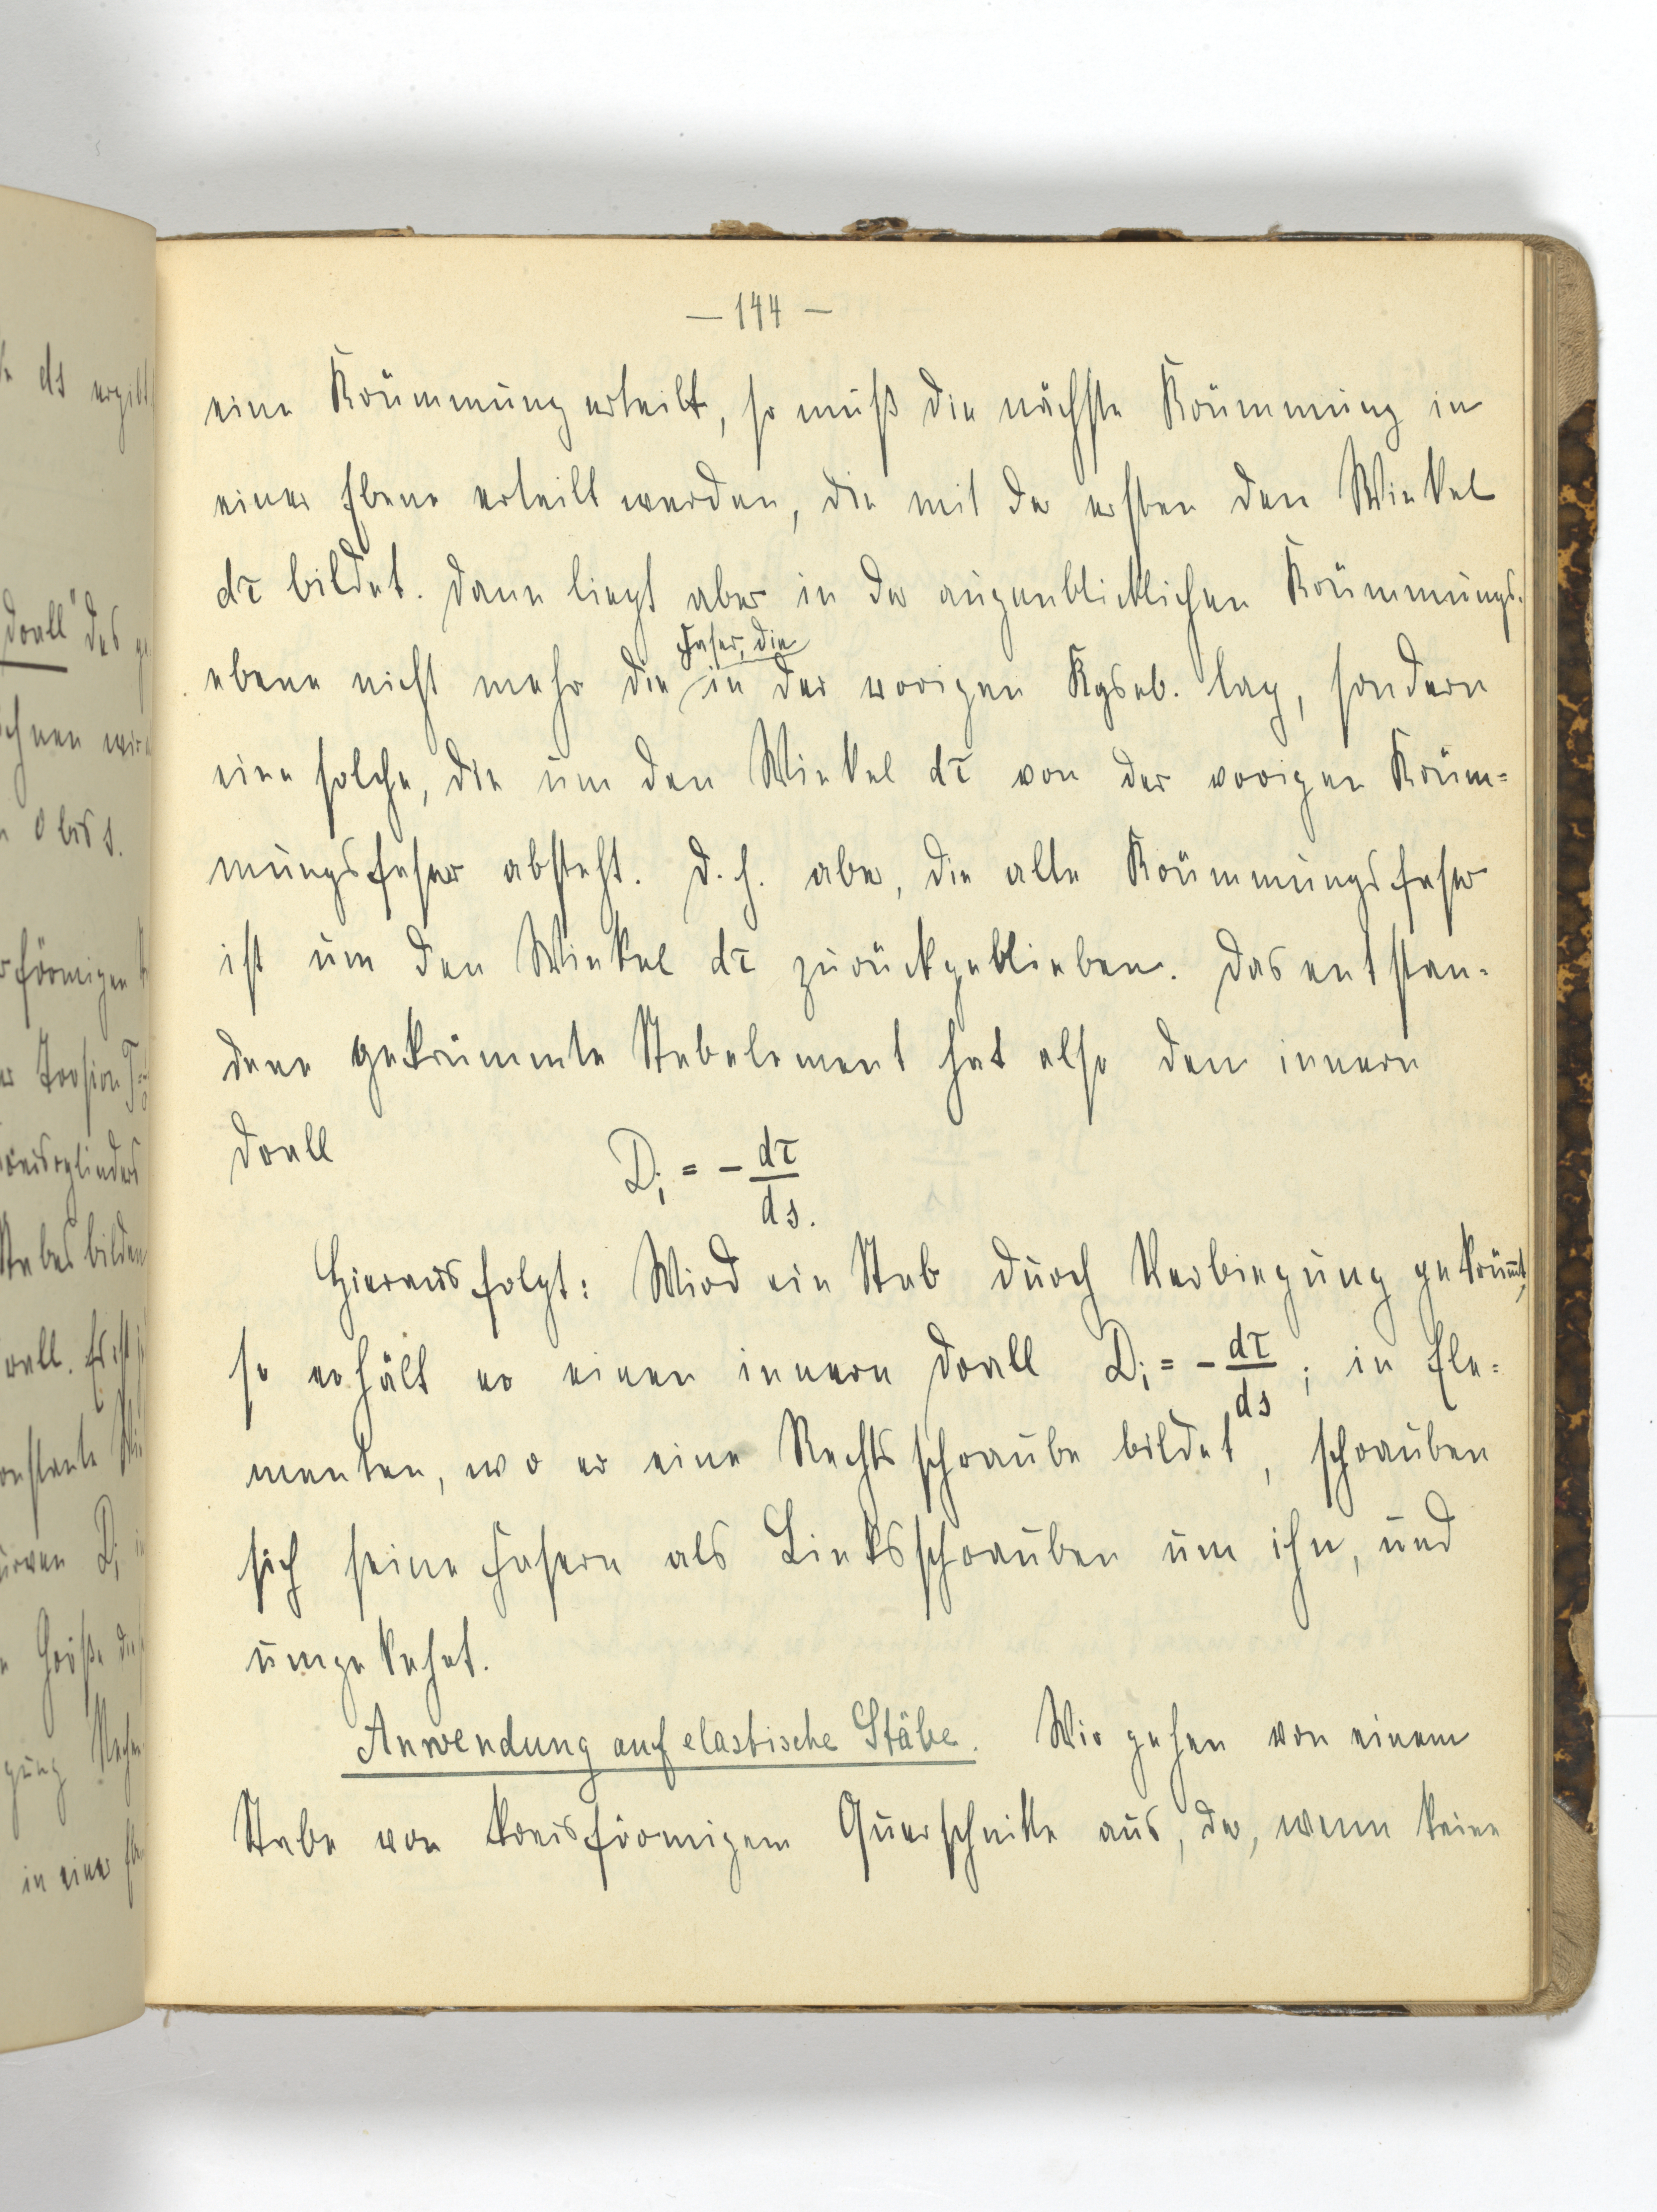 — 144 —
eine Krümmung erteilt, so muß die nächste Krümmung in
einer Ebene erteilt werden, die mit der ersten den Winkel
dτ bildet. Dann liegt aber in der augenblicklichen Krümmungs-
ebene nicht mehr die Faser, die in der vorigen Kgseb. lag, sondern
eine solche, die um den Winkel dτ von der vorigen Krüm=
mungsfaser absteht. D. h. aber, die alte Krümmungsfaser
ist um den Winkel dτ zurückgeblieben. Das entstan-
dene gekrümmte Stabelement hat also den innern
Drall D_i = - dτ/ds.
Hieraus folgt: Wird ein Stab durch Verbiegung gekrümt,
so erhält er einen innern Drall D_i = - dτ/ds; in Ele=
menten, wo er eine Rechtsschraube bildet, schrauben
sich seine Fasern als Linksschrauben um ihn, und
umgekehrt.
Anwendung auf elastische Stäbe. Wir gehen von einem
Stabe von kreisförmigem Querschnitte aus, der, wenn keine